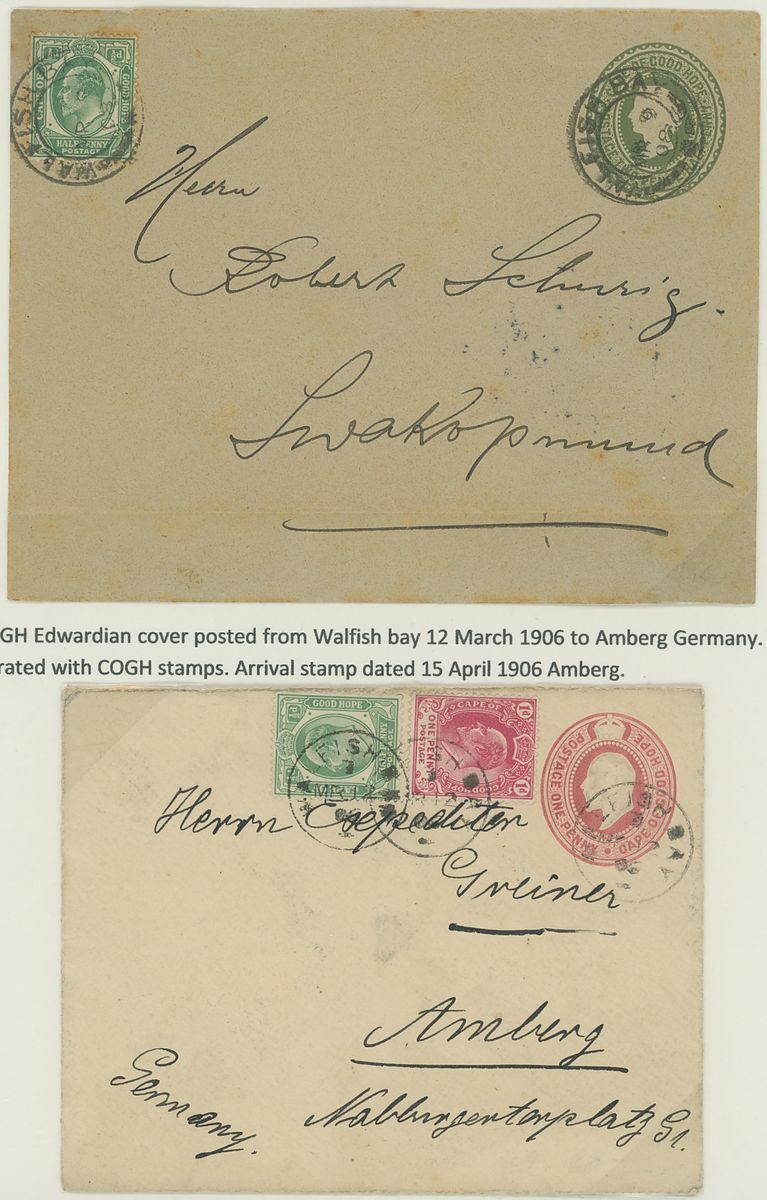 CAPE OF GOOD HOPE
HALFPENNY
POSTAGE
WALFISH BAY
GOOD HOPE
WALFISH BAY
Herrn
Robert Schurig.
Swakopmund
GH Edwardian cover posted from Walfish bay 12 March 1906 to Amberg Germany.
rated with COGH stamps. Arrival stamp dated 15 April 1906 Amberg.
GOOD HOPE
½d
CAPE OF
ONE PENNY
POSTAGE
GOOD HOPE
1d
1d
POSTAGE ONE PENNY CAPE OF GOOD HOPE
FISH
MR 12
BAY
Herrn Expeditor
Greiner
Amberg
Nabburgertorplatz
Germany.